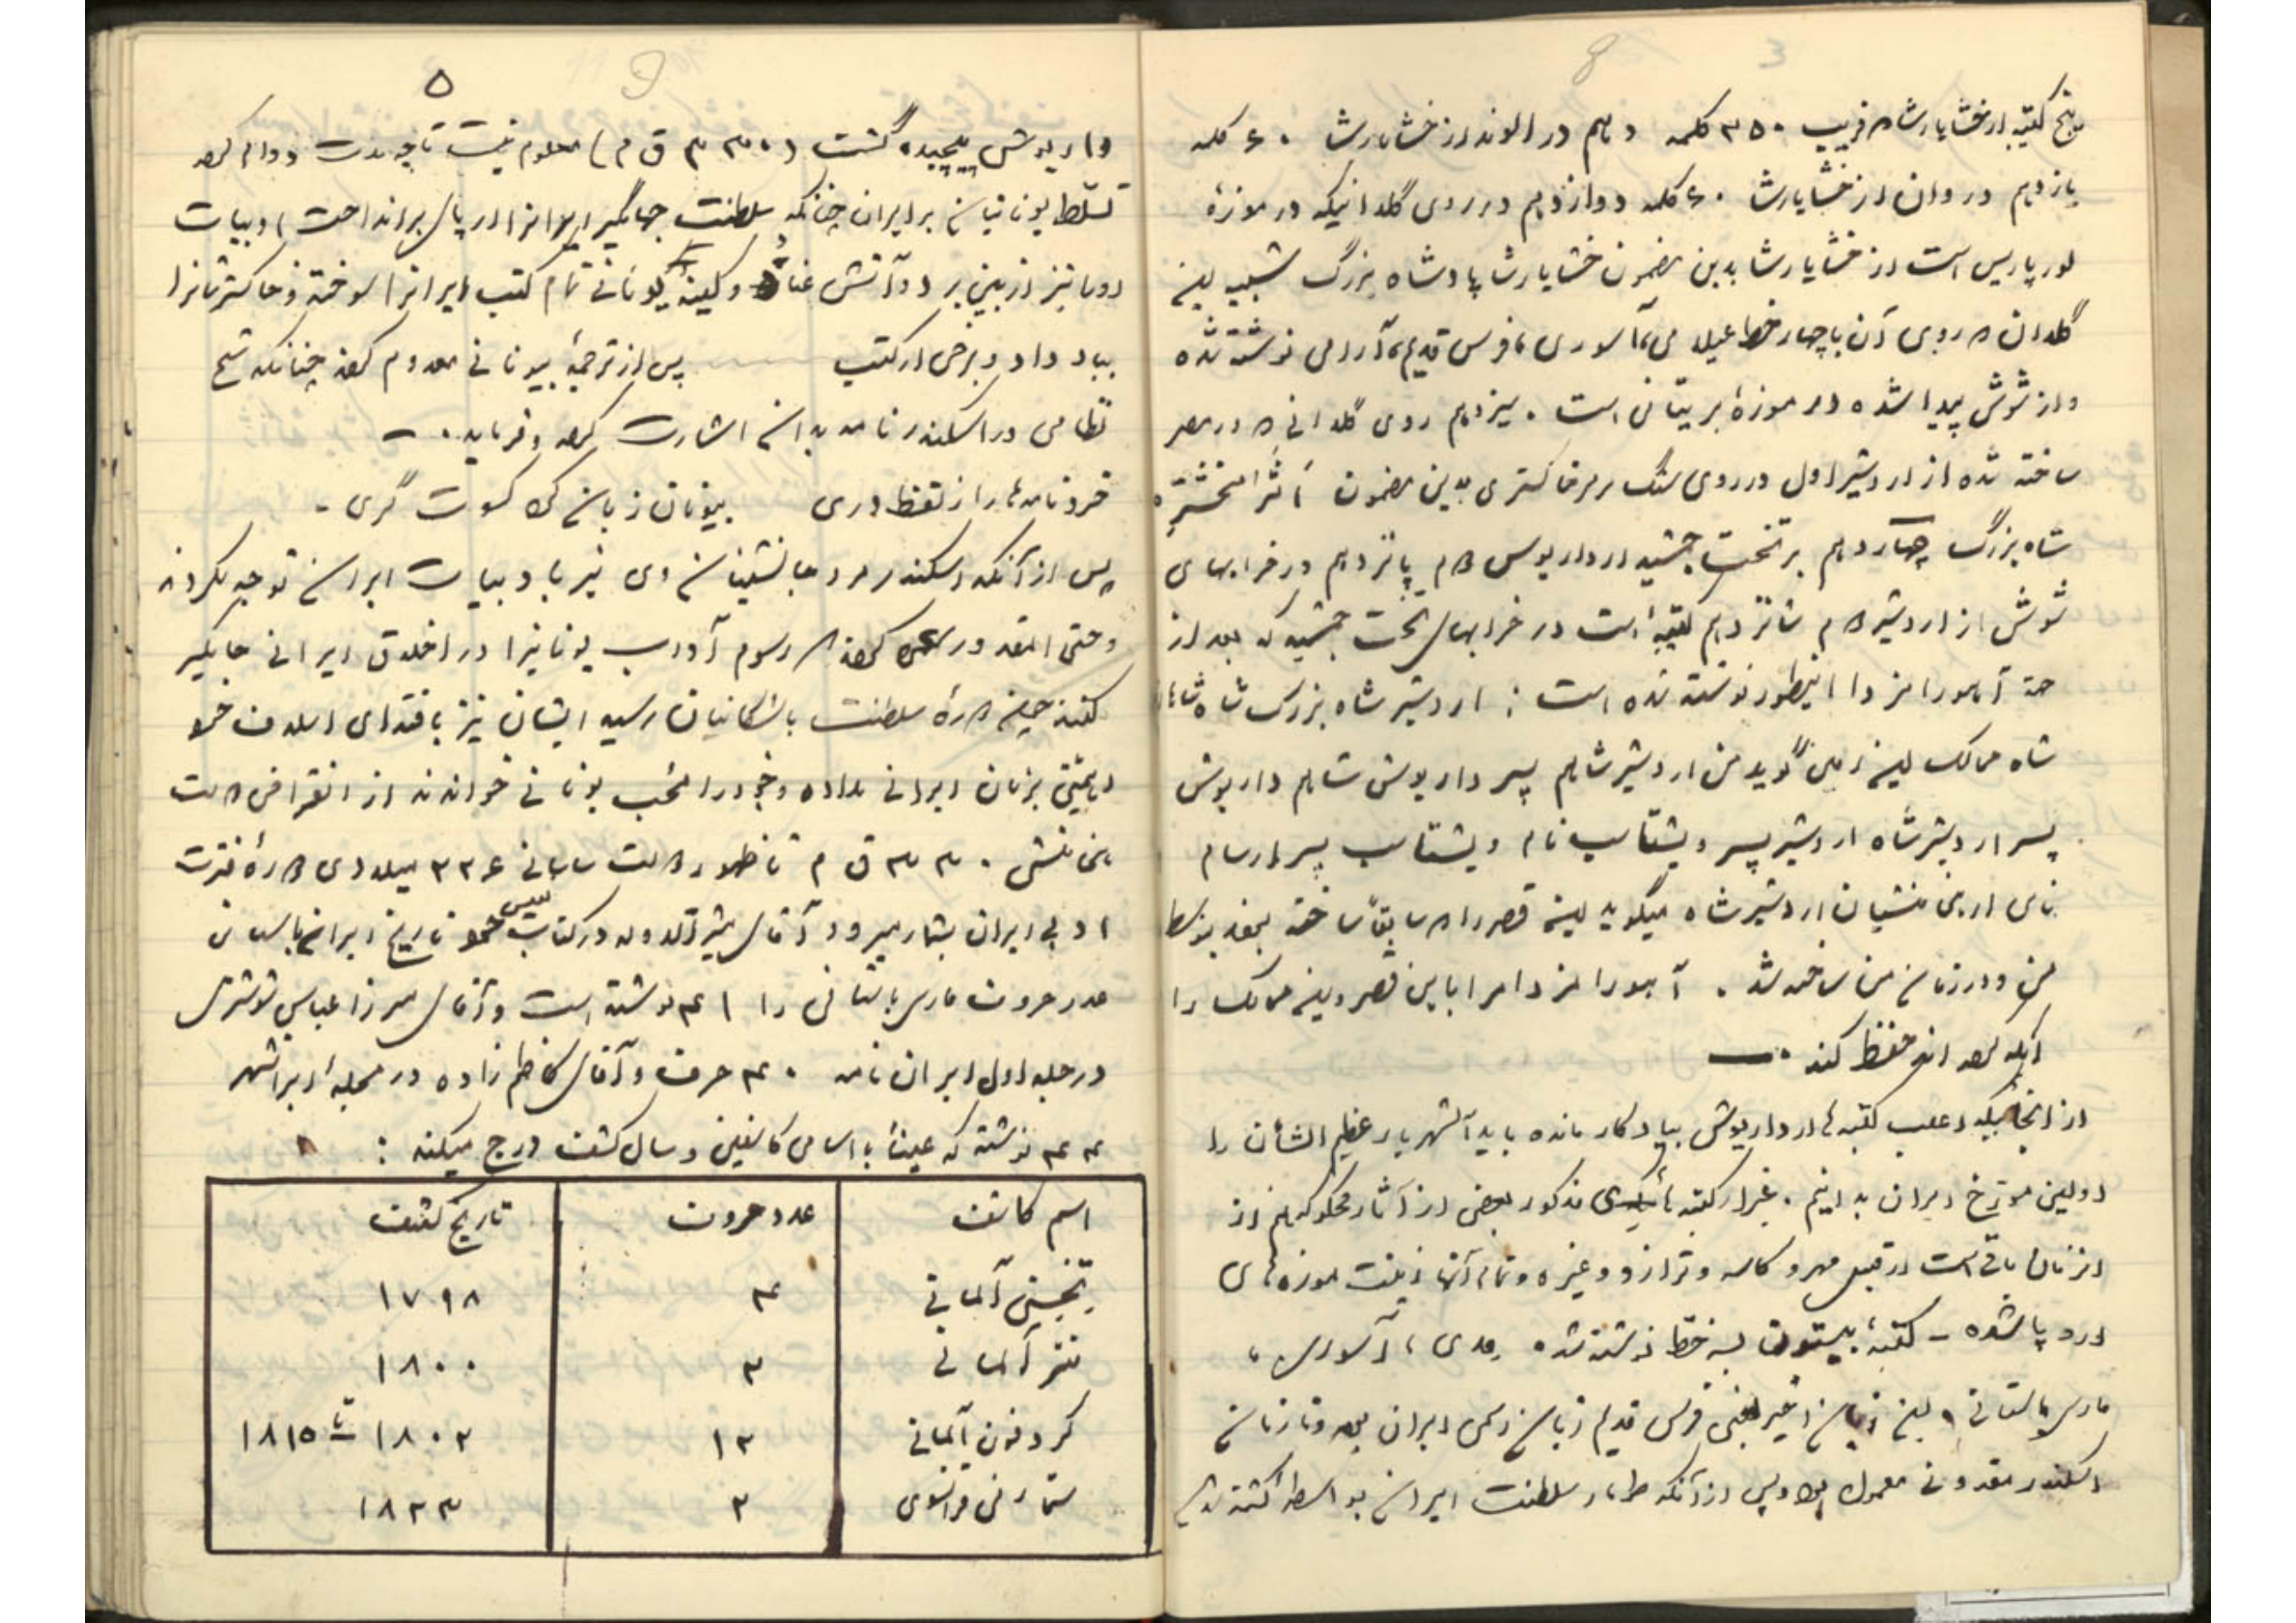 پنج کتیبه از خشایارشا که قریب ۳۵۰ کلمه دهم در الوند از خشایارشا ۶۰ کلمه
یازدهم در وان از خشایارشا ۶۰ کلمه دوازدهم در روی گلدانیکه در موزهٔ
لور پاریس است از خشایارشا بدین مضمون خشایارشا پادشاه بزرگ شبیه این
گلدان که روی آن با چهار خط عیلامی، آسوری، فرس قدیم، آرامی نوشته شده
و از شوش پیدا شده در موزهٔ بریتانی است. سیزدهم روی گلدانی که در مصر
ساخته شده از اردشیر اول در روی سنگ مرمر خاکستری بدین مضمون
شاه بزرگ چهاردهم بر تخت جمشید از داریوس دوم پانزدهم در خرابهای
شوش از اردشیر دوم شانزدهم کتیبهٔ است در خرابهای تخت جمشید که بعد از
آهورامزدا اینطور نوشته شده است : اردشیر شاه بزرگ شاه شاهان
شاه ممالک این زمین گوید من اردشیر شاهم پسر داریوش شاه داریوش
پسر اردشیر شاه اردشیر پسر ویشتاسپ نام ویشتاسب پسر ارسام
نامی از هخامنشیان اردشیر شاه میگوید این قصر را که سابقاً ساخته بودند بتوسط
من و در زمان من ساخته شد. آهورامزدا مرا با این قصر و این ممالک را
حفظ کند . —
از آنجائیکه اغلب کتیبه‌ها از داریوش بیادگار مانده باید آنشهریار عظیم الشأن را
اولین مورخ ایران بدانیم. غیر از کتیبه‌های مذکور بعضی از آثار محکوکه هم از
آنزمان باقی است از قبیل مهر و کاسه و ترازو و غیره و تمام آنها زینت موزه‌های
اروپا شده - کتیبهٔ بیستون بسه خط نوشته شده مدی، آسوری،
فارسی باستانی، این زبان اخیر یعنی فرس قدیم زبان رسمی ایران بوده و تا زمان
اسکندر مقدونی معمول بود و پس از آنکه طومار سلطنت ایران بواسطهٔ کشته شدن
۵
داریوش پیچیده گشت (۳۳۰ ق م) معلوم نیست تا چه مدت دوام کرد
تسلط یونانیان بر ایران چنانکه سلطنت جهانگیر ایرانرا از پای برانداخت ادبیات
او را نیز از بین برد و آتش عناد و کینهٔ یونانی تمام کتب ایرانرا سوخته و خاکسترشانرا
بباد داد و برخی از کتب پس از ترجمهٔ بیونانی معدوم کردند چنانکه شیخ
نظامی در اسکندرنامه بدان اشارت کرده و فرماید. —
خردنامه‌ها را ز لفظ دری بیونان زبان کرد کسوت گری -
پس از آنکه اسکندر مرد جانشینان وی نیز بادبیات ایران توجه نکردند
و حتی المقدور سعی کردند که رسوم آداب یونانیرا در اخلاق ایرانی جایگیر
کنند چون دورهٔ سلطنت باشکانیان رسید ایشان نیز باقتدای اسلاف خود
اهمیتی بزبان ایرانی نداده و خود را محب یونانی خواندند از انقراض دولت
هخامنشی ۳۳۰ ق م تا ظهور دولت ساسانی ۲۲۶ میلادی دورهٔ فترت
ادبی ایران بشمار میرود آقای مشیرالدوله در کتاب نفیس خود تاریخ ایران باستانی
عدد حروف فارسی باستانی را ۴۱ نوشته است و آقای میرزا عباس شوشتری
در جلد اول ایران نامه ۴۰ حرف و آقای کاظم زاده در مجله ایرانشهر
۴۴ نوشته که عیناً با اسامی کاشفین و سال کشف درج میکند :
اسم کاشف عدد حروف تاریخ کشف
تیخسن آلمانی ۴ ۱۷۹۸
منتر آلمانی ۲ ۱۸۰۰
کروتفون آلمانی ۱۲ ۱۸۰۲ تا ۱۸۱۵
سنمارتن فرانسوی ۲ ۱۸۲۳